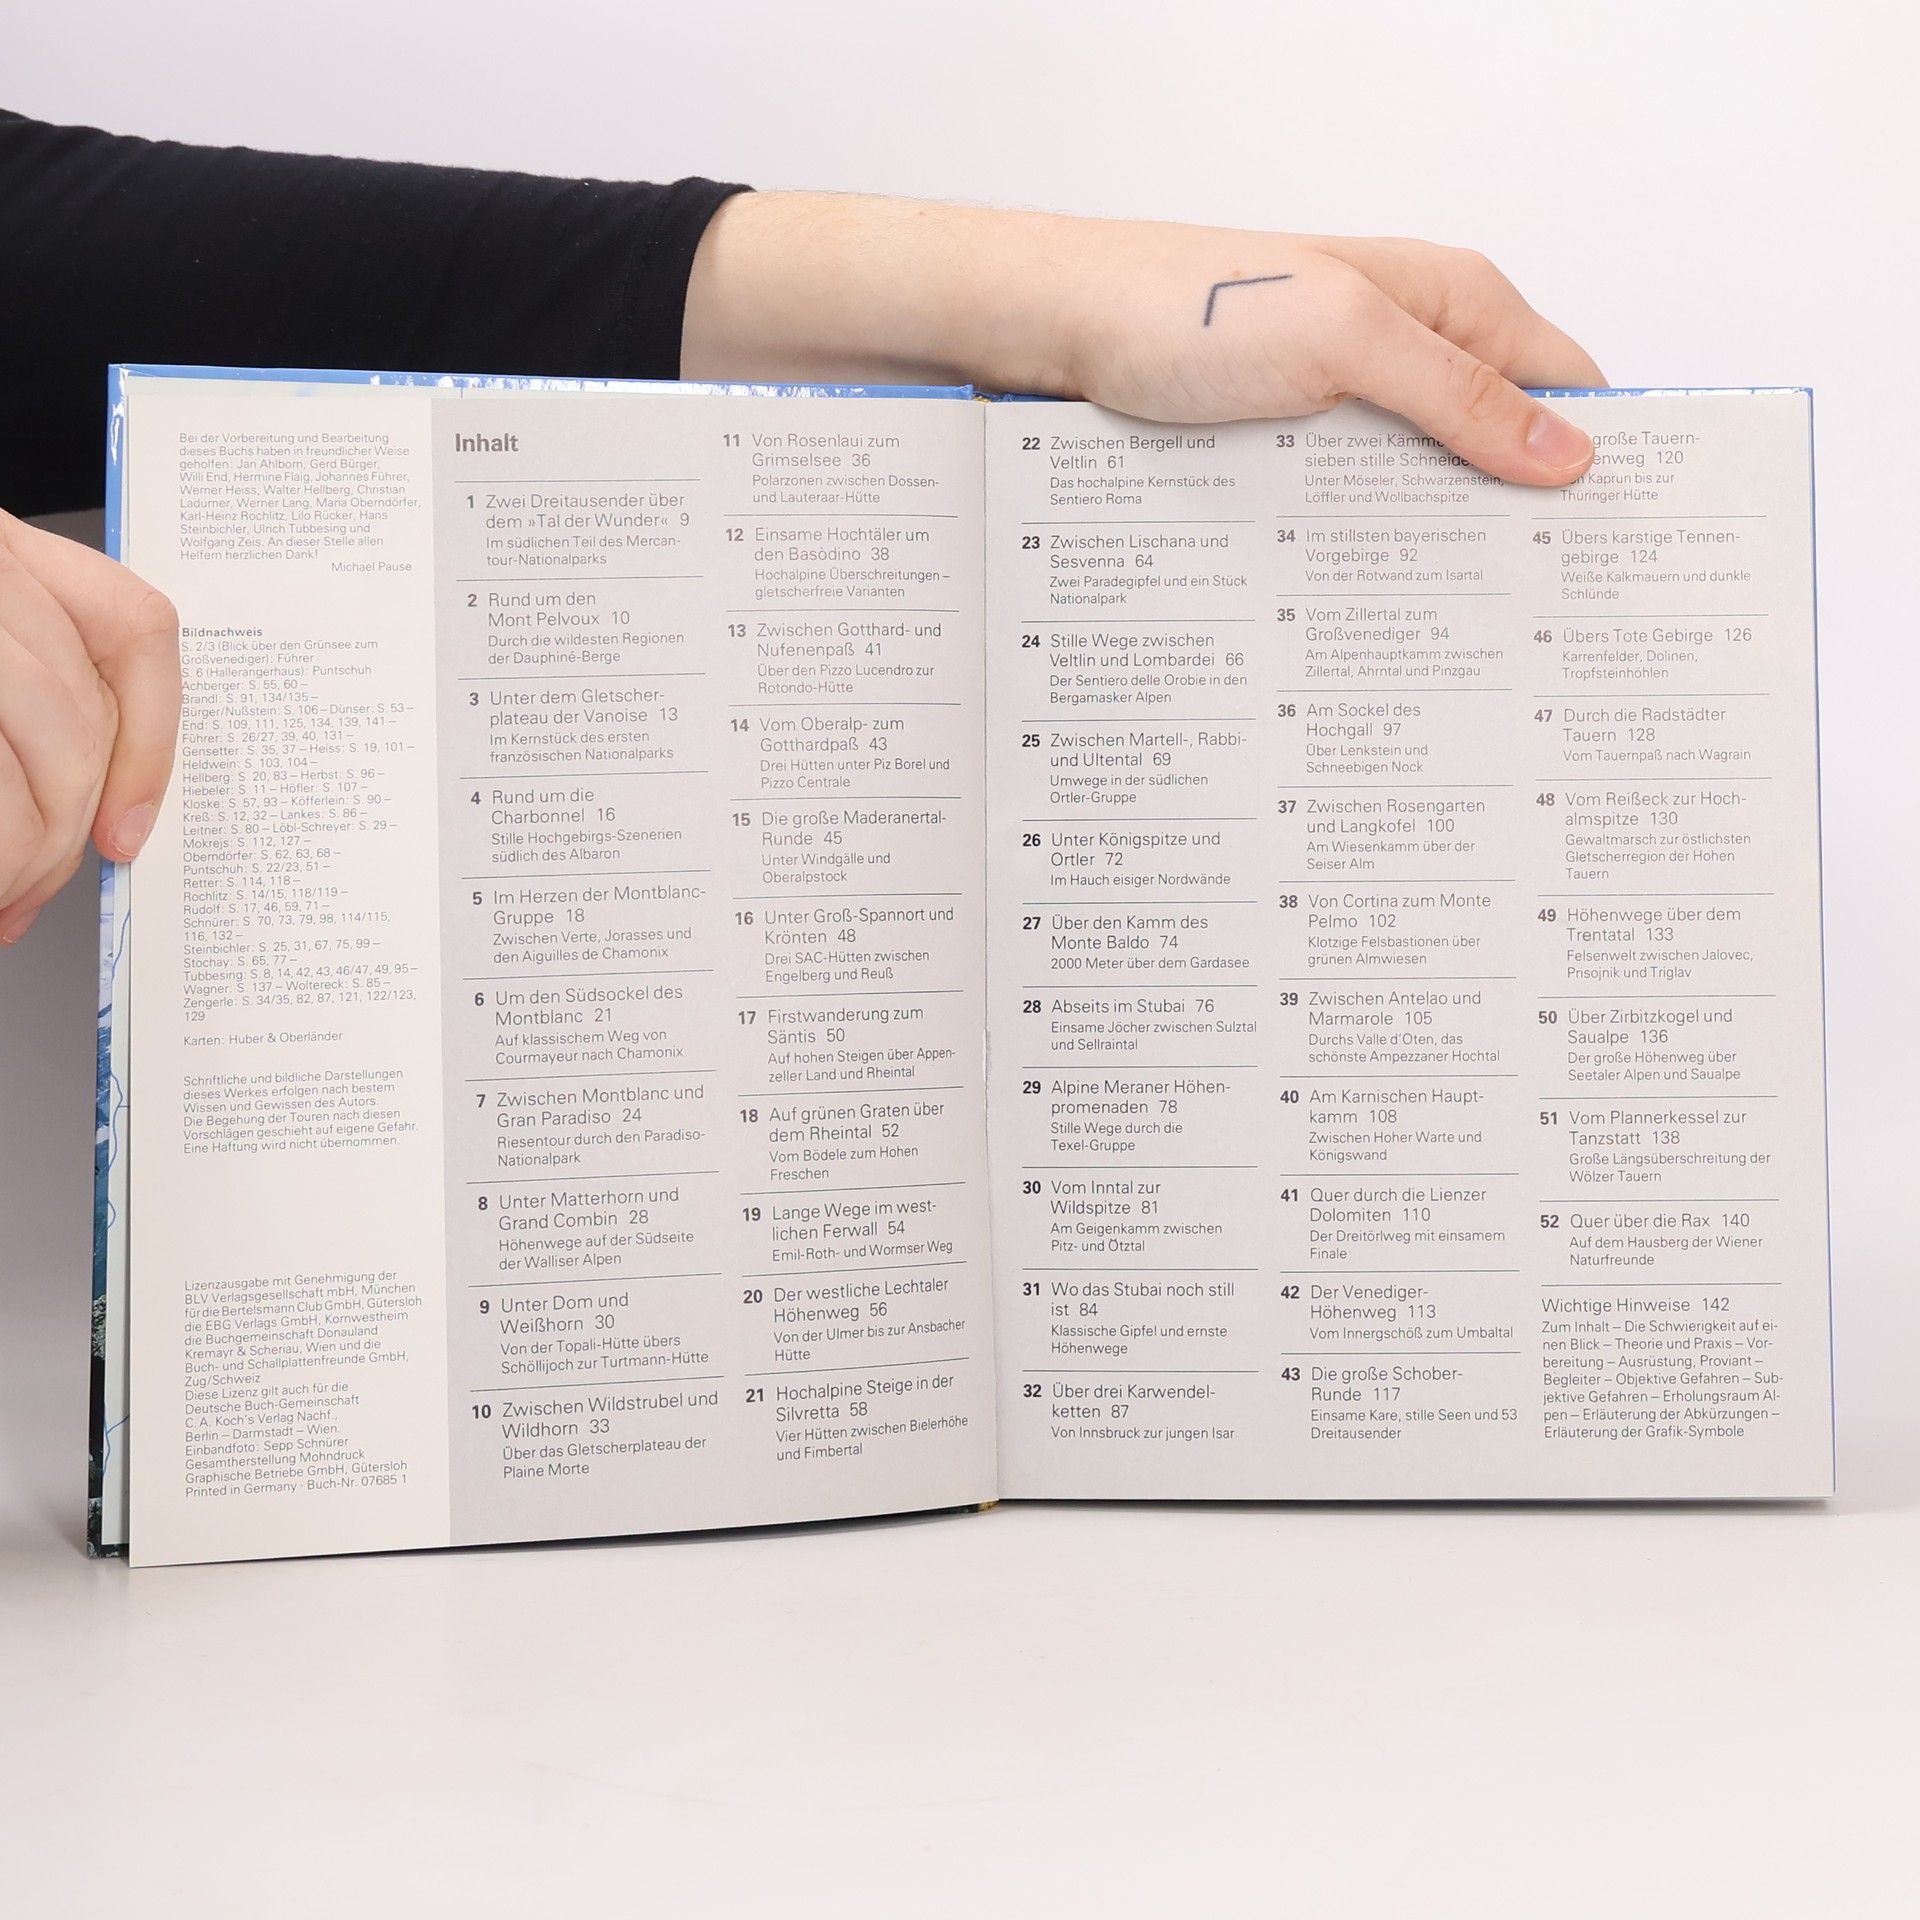 Bei der Vorbereitung und Bearbeitung
dieses Buchs haben in freundlicher Weise
geholfen: Jan Ahlborn, Gerd Bürger,
Willi End, Hermine Flaig, Johannes Führer,
Werner Heiss, Walter Hellberg, Christian
Ladurner, Werner Lang, Maria Oberndörfer,
Karl-Heinz Rochlitz, Lilo Rücker, Hans
Steinbichler, Ulrich Tubbesing und
Wolfgang Zeis. An dieser Stelle allen
Helfern herzlichen Dank!
Michael Pause
Bildnachweis
S. 2/3 (Blick über den Grünsee zum
Großvenediger): Führer
S. 6 (Hallerangerhaus): Puntschuh
Achberger: S. 55, 60 –
Brandl: S. 91, 134/135 –
Bürger/Nußstein: S. 106 – Dünser: S. 53 –
End: S. 109, 111, 125, 134, 139, 141 –
Führer: S. 26/27, 39, 40, 131 –
Gensetter: S. 35, 37 – Heiss: S. 19, 101 –
Heldwein: S. 103, 104 –
Hellberg: S. 20, 83 – Herbst: S. 96 –
Hiebeler: S. 11 – Höfler: S. 107 –
Kloske: S. 57, 93 – Köfferlein: S. 90 –
Kreß: S. 12, 32 – Lankes: S. 86 –
Leitner: S. 80 – Löbl-Schreyer: S. 29 –
Mokrejs: S. 112, 127 –
Oberndörfer: S. 62, 63, 68 –
Puntschuh: S. 22/23, 51 –
Retter: S. 114, 118 –
Rochlitz: S. 14/15, 118/119 –
Rudolf: S. 17, 46, 59, 71 –
Schnürer: S. 70, 73, 79, 98, 114/115,
116, 132 –
Steinbichler: S. 25, 31, 67, 75, 99 –
Stochay: S. 65, 77 –
Tubbesing: S. 8, 14, 42, 43, 46/47, 49, 95 –
Wagner: S. 137 – Woltereck: S. 85 –
Zengerle: S. 34/35, 82, 87, 121, 122/123,
129
Karten: Huber & Oberländer
Schriftliche und bildliche Darstellungen
dieses Werkes erfolgen nach bestem
Wissen und Gewissen des Autors.
Die Begehung der Touren nach diesen
Vorschlägen geschieht auf eigene Gefahr.
Eine Haftung wird nicht übernommen.
Lizenzausgabe mit Genehmigung der
BLV Verlagsgesellschaft mbH, München
für die Bertelsmann Club GmbH, Gütersloh
die EBG Verlags GmbH, Kornwestheim
die Buchgemeinschaft Donauland
Kremayr & Scheriau, Wien und die
Buch- und Schallplattenfreunde GmbH,
Zug/Schweiz
Diese Lizenz gilt auch für die
Deutsche Buch-Gemeinschaft
C. A. Koch's Verlag Nachf.,
Berlin – Darmstadt – Wien.
Einbandfoto: Sepp Schnürer
Gesamtherstellung Mohndruck
Graphische Betriebe GmbH, Gütersloh
Printed in Germany · Buch-Nr. 07685 1
Inhalt
1 Zwei Dreitausender über
dem »Tal der Wunder« 9
Im südlichen Teil des Mercan-
tour-Nationalparks
2 Rund um den
Mont Pelvoux 10
Durch die wildesten Regionen
der Dauphiné-Berge
3 Unter dem Gletscher-
plateau der Vanoise 13
Im Kernstück des ersten
französischen Nationalparks
4 Rund um die
Charbonnel 16
Stille Hochgebirgs-Szenerien
südlich des Albaron
5 Im Herzen der Montblanc-
Gruppe 18
Zwischen Verte, Jorasses und
den Aiguilles de Chamonix
6 Um den Südsockel des
Montblanc 21
Auf klassischem Weg von
Courmayeur nach Chamonix
7 Zwischen Montblanc und
Gran Paradiso 24
Riesentour durch den Paradiso-
Nationalpark
8 Unter Matterhorn und
Grand Combin 28
Höhenwege auf der Südseite
der Walliser Alpen
9 Unter Dom und
Weißhorn 30
Von der Topali-Hütte übers
Schöllijoch zur Turtmann-Hütte
10 Zwischen Wildstrubel und
Wildhorn 33
Über das Gletscherplateau der
Plaine Morte
11 Von Rosenlaui zum
Grimselsee 36
Polarzonen zwischen Dossen-
und Lauteraar-Hütte
12 Einsame Hochtäler um
den Basòdino 38
Hochalpine Überschreitungen –
gletscherfreie Varianten
13 Zwischen Gotthard- und
Nufenenpaß 41
Über den Pizzo Lucendro zur
Rotondo-Hütte
14 Vom Oberalp- zum
Gotthardpaß 43
Drei Hütten unter Piz Borel und
Pizzo Centrale
15 Die große Maderanertal-
Runde 45
Unter Windgälle und
Oberalpstock
16 Unter Groß-Spannort und
Krönten 48
Drei SAC-Hütten zwischen
Engelberg und Reuß
17 Firstwanderung zum
Säntis 50
Auf hohen Steigen über Appen-
zeller Land und Rheintal
18 Auf grünen Graten über
dem Rheintal 52
Vom Bödele zum Hohen
Freschen
19 Lange Wege im west-
lichen Ferwall 54
Emil-Roth- und Wormser Weg
20 Der westliche Lechtaler
Höhenweg 56
Von der Ulmer bis zur Ansbacher
Hütte
21 Hochalpine Steige in der
Silvretta 58
Vier Hütten zwischen Bielerhöhe
und Fimbertal
22 Zwischen Bergell und
Veltlin 61
Das hochalpine Kernstück des
Sentiero Roma
23 Zwischen Lischana und
Sesvenna 64
Zwei Paradegipfel und ein Stück
Nationalpark
24 Stille Wege zwischen
Veltlin und Lombardei 66
Der Sentiero delle Orobie in den
Bergamasker Alpen
25 Zwischen Martell-, Rabbi-
und Ultental 69
Umwege in der südlichen
Ortler-Gruppe
26 Unter Königspitze und
Ortler 72
Im Hauch eisiger Nordwände
27 Über den Kamm des
Monte Baldo 74
2000 Meter über dem Gardasee
28 Abseits im Stubai 76
Einsame Jöcher zwischen Sulztal
und Sellraintal
29 Alpine Meraner Höhen-
promenaden 78
Stille Wege durch die
Texel-Gruppe
30 Vom Inntal zur
Wildspitze 81
Am Geigenkamm zwischen
Pitz- und Ötztal
31 Wo das Stubai noch still
ist 84
Klassische Gipfel und ernste
Höhenwege
32 Über drei Karwendel-
ketten 87
Von Innsbruck zur jungen Isar
33 Über zwei
sieben stille
Unter Möseler, Schwarzenstein,
Löffler und Wollbachspitze
34 Im stillsten bayerischen
Vorgebirge 92
Von der Rotwand zum Isartal
35 Vom Zillertal zum
Großvenediger 94
Am Alpenhauptkamm zwischen
Zillertal, Ahrntal und Pinzgau
36 Am Sockel des
Hochgall 97
Über Lenkstein und
Schneebigen Nock
37 Zwischen Rosengarten
und Langkofel 100
Am Wiesenkamm über der
Seiser Alm
38 Von Cortina zum Monte
Pelmo 102
Klotzige Felsbastionen über
grünen Almwiesen
39 Zwischen Antelao und
Marmarole 105
Durchs Valle d'Oten, das
schönste Ampezzaner Hochtal
40 Am Karnischen Haupt-
kamm 108
Zwischen Hoher Warte und
Königswand
41 Quer durch die Lienzer
Dolomiten 110
Der Dreitörlweg mit einsamem
Finale
42 Der Venediger-
Höhenweg 113
Vom Innergschöß zum Umbaltal
43 Die große Schober-
Runde 117
Einsame Kare, stille Seen und 53
Dreitausender
große Tauern-
enweg 120
Kaprun bis zur
Thüringer Hütte
45 Übers karstige Tennen-
gebirge 124
Weiße Kalkmauern und dunkle
Schlünde
46 Übers Tote Gebirge 126
Karrenfelder, Dolinen,
Tropfsteinhöhlen
47 Durch die Radstädter
Tauern 128
Vom Tauernpaß nach Wagrain
48 Vom Reißeck zur Hoch-
almspitze 130
Gewaltmarsch zur östlichsten
Gletscherregion der Hohen
Tauern
49 Höhenwege über dem
Trentatal 133
Felsenwelt zwischen Jalovec,
Prisojnik und Triglav
50 Über Zirbitzkogel und
Saualpe 136
Der große Höhenweg über
Seetaler Alpen und Saualpe
51 Vom Plannerkessel zur
Tanzstatt 138
Große Längsüberschreitung der
Wölzer Tauern
52 Quer über die Rax 140
Auf dem Hausberg der Wiener
Naturfreunde
Wichtige Hinweise 142
Zum Inhalt – Die Schwierigkeit auf ei-
nen Blick – Theorie und Praxis – Vor-
bereitung – Ausrüstung, Proviant –
Begleiter – Objektive Gefahren – Sub-
jektive Gefahren – Erholungsraum Al-
pen – Erläuterung der Abkürzungen –
Erläuterung der Grafik-Symbole